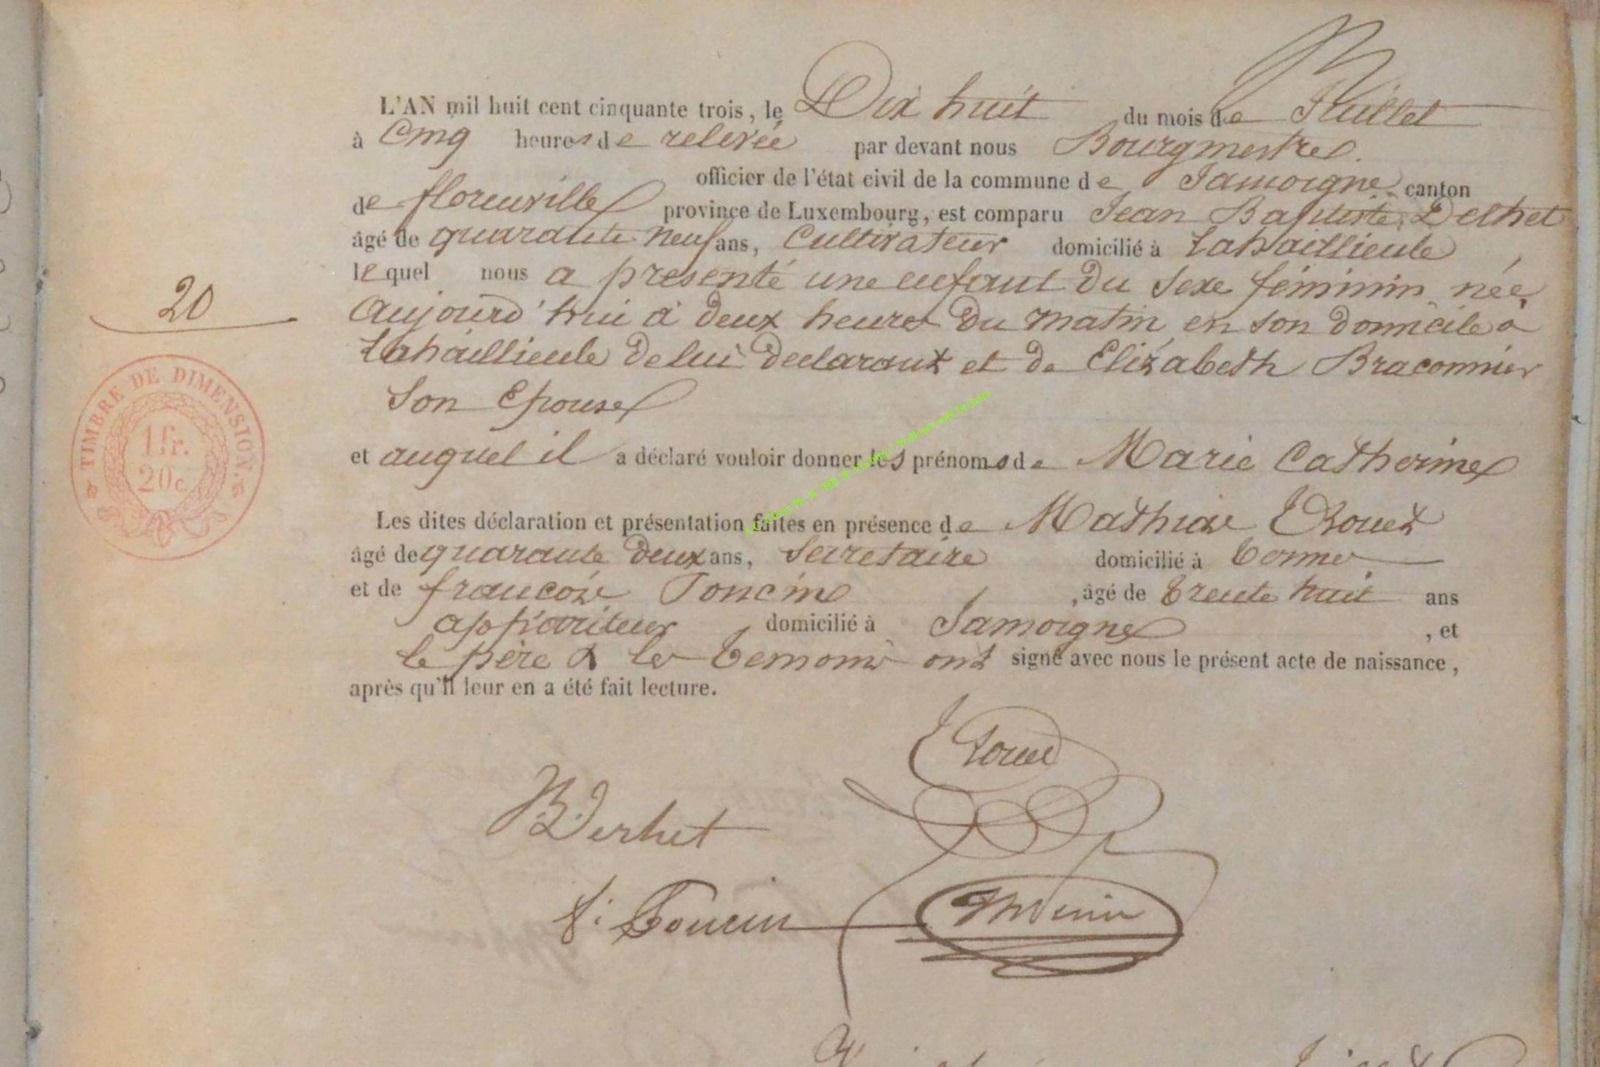 L'AN mil huit cent cinquante trois, le Dix huit du mois de Juillet
à Cinq heures de relevée par devant nous Bourgmestre
officier de l'état civil de la commune de Jamoigne canton
de florenville province de Luxembourg, est comparu Jean Baptiste Delhet
âgé de quarante neuf ans, Cultivateur domicilié à Lahaillieule
lequel nous a présenté une enfant du sexe féminin née
aujourd'hui à deux heures du matin en son domicile à
Lahaillieule de lui déclarant et de Elizabeth Braconnier
son Epouse
20
TIMBRE DE DIMENSION.
1 fr.
20 c.
et auquel il a déclaré vouloir donner les prénoms de Marie Catherine
Les dites déclaration et présentation faites en présence de Mathieu
âgé de quarante deux ans, Secretaire domicilié à
et de francois Poncin, âgé de trente huit ans
appariteur domicilié à Jamoigne, et
le père & les temoins ont signé avec nous le présent acte de naissance,
après qu'il leur en a été fait lecture.